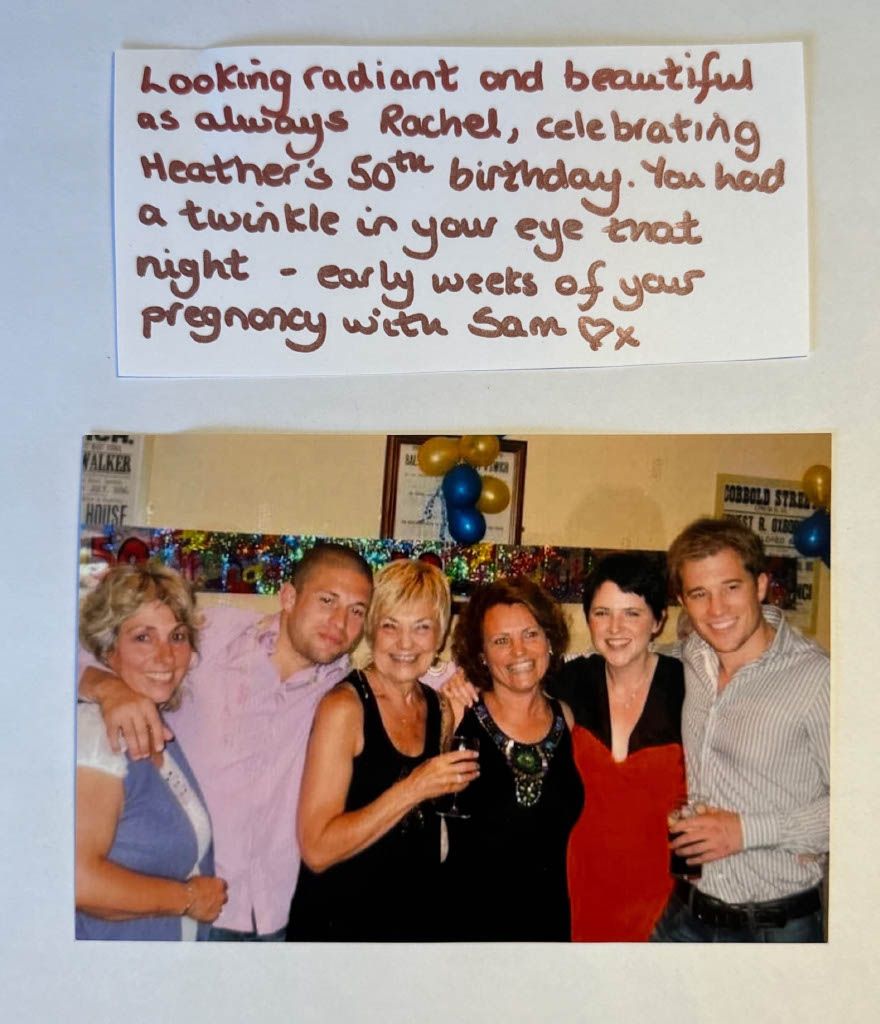 Looking radiant and beautiful
as always Rachel, celebrating
Heather's 50th birthday. You had
a twinkle in your eye that
night - early weeks of your
pregnancy with Sam ♡x
WALKER
HOUSE
50
COBBOLD STREE